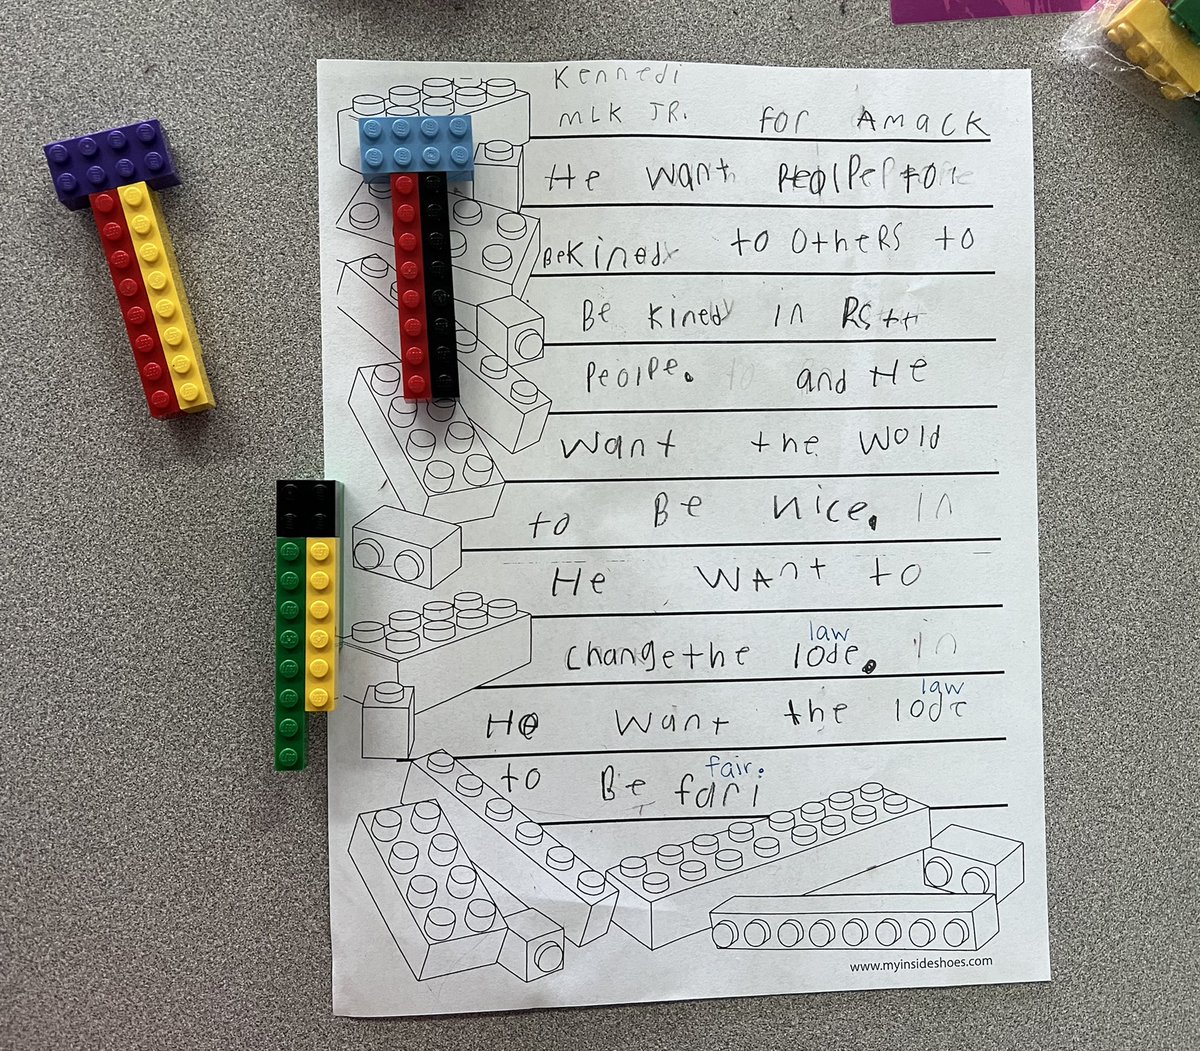 Kennedi
MLK JR. for AMACK
He want PEOlPe to
BeKined to OtheRS to
Be kined in
Peolpe. to and He
want the wold
to Be nice. in
He WAnt to
law
changethe lode. in
law
He want the lode
fair.
to Be fari
www.myinsideshoes.com